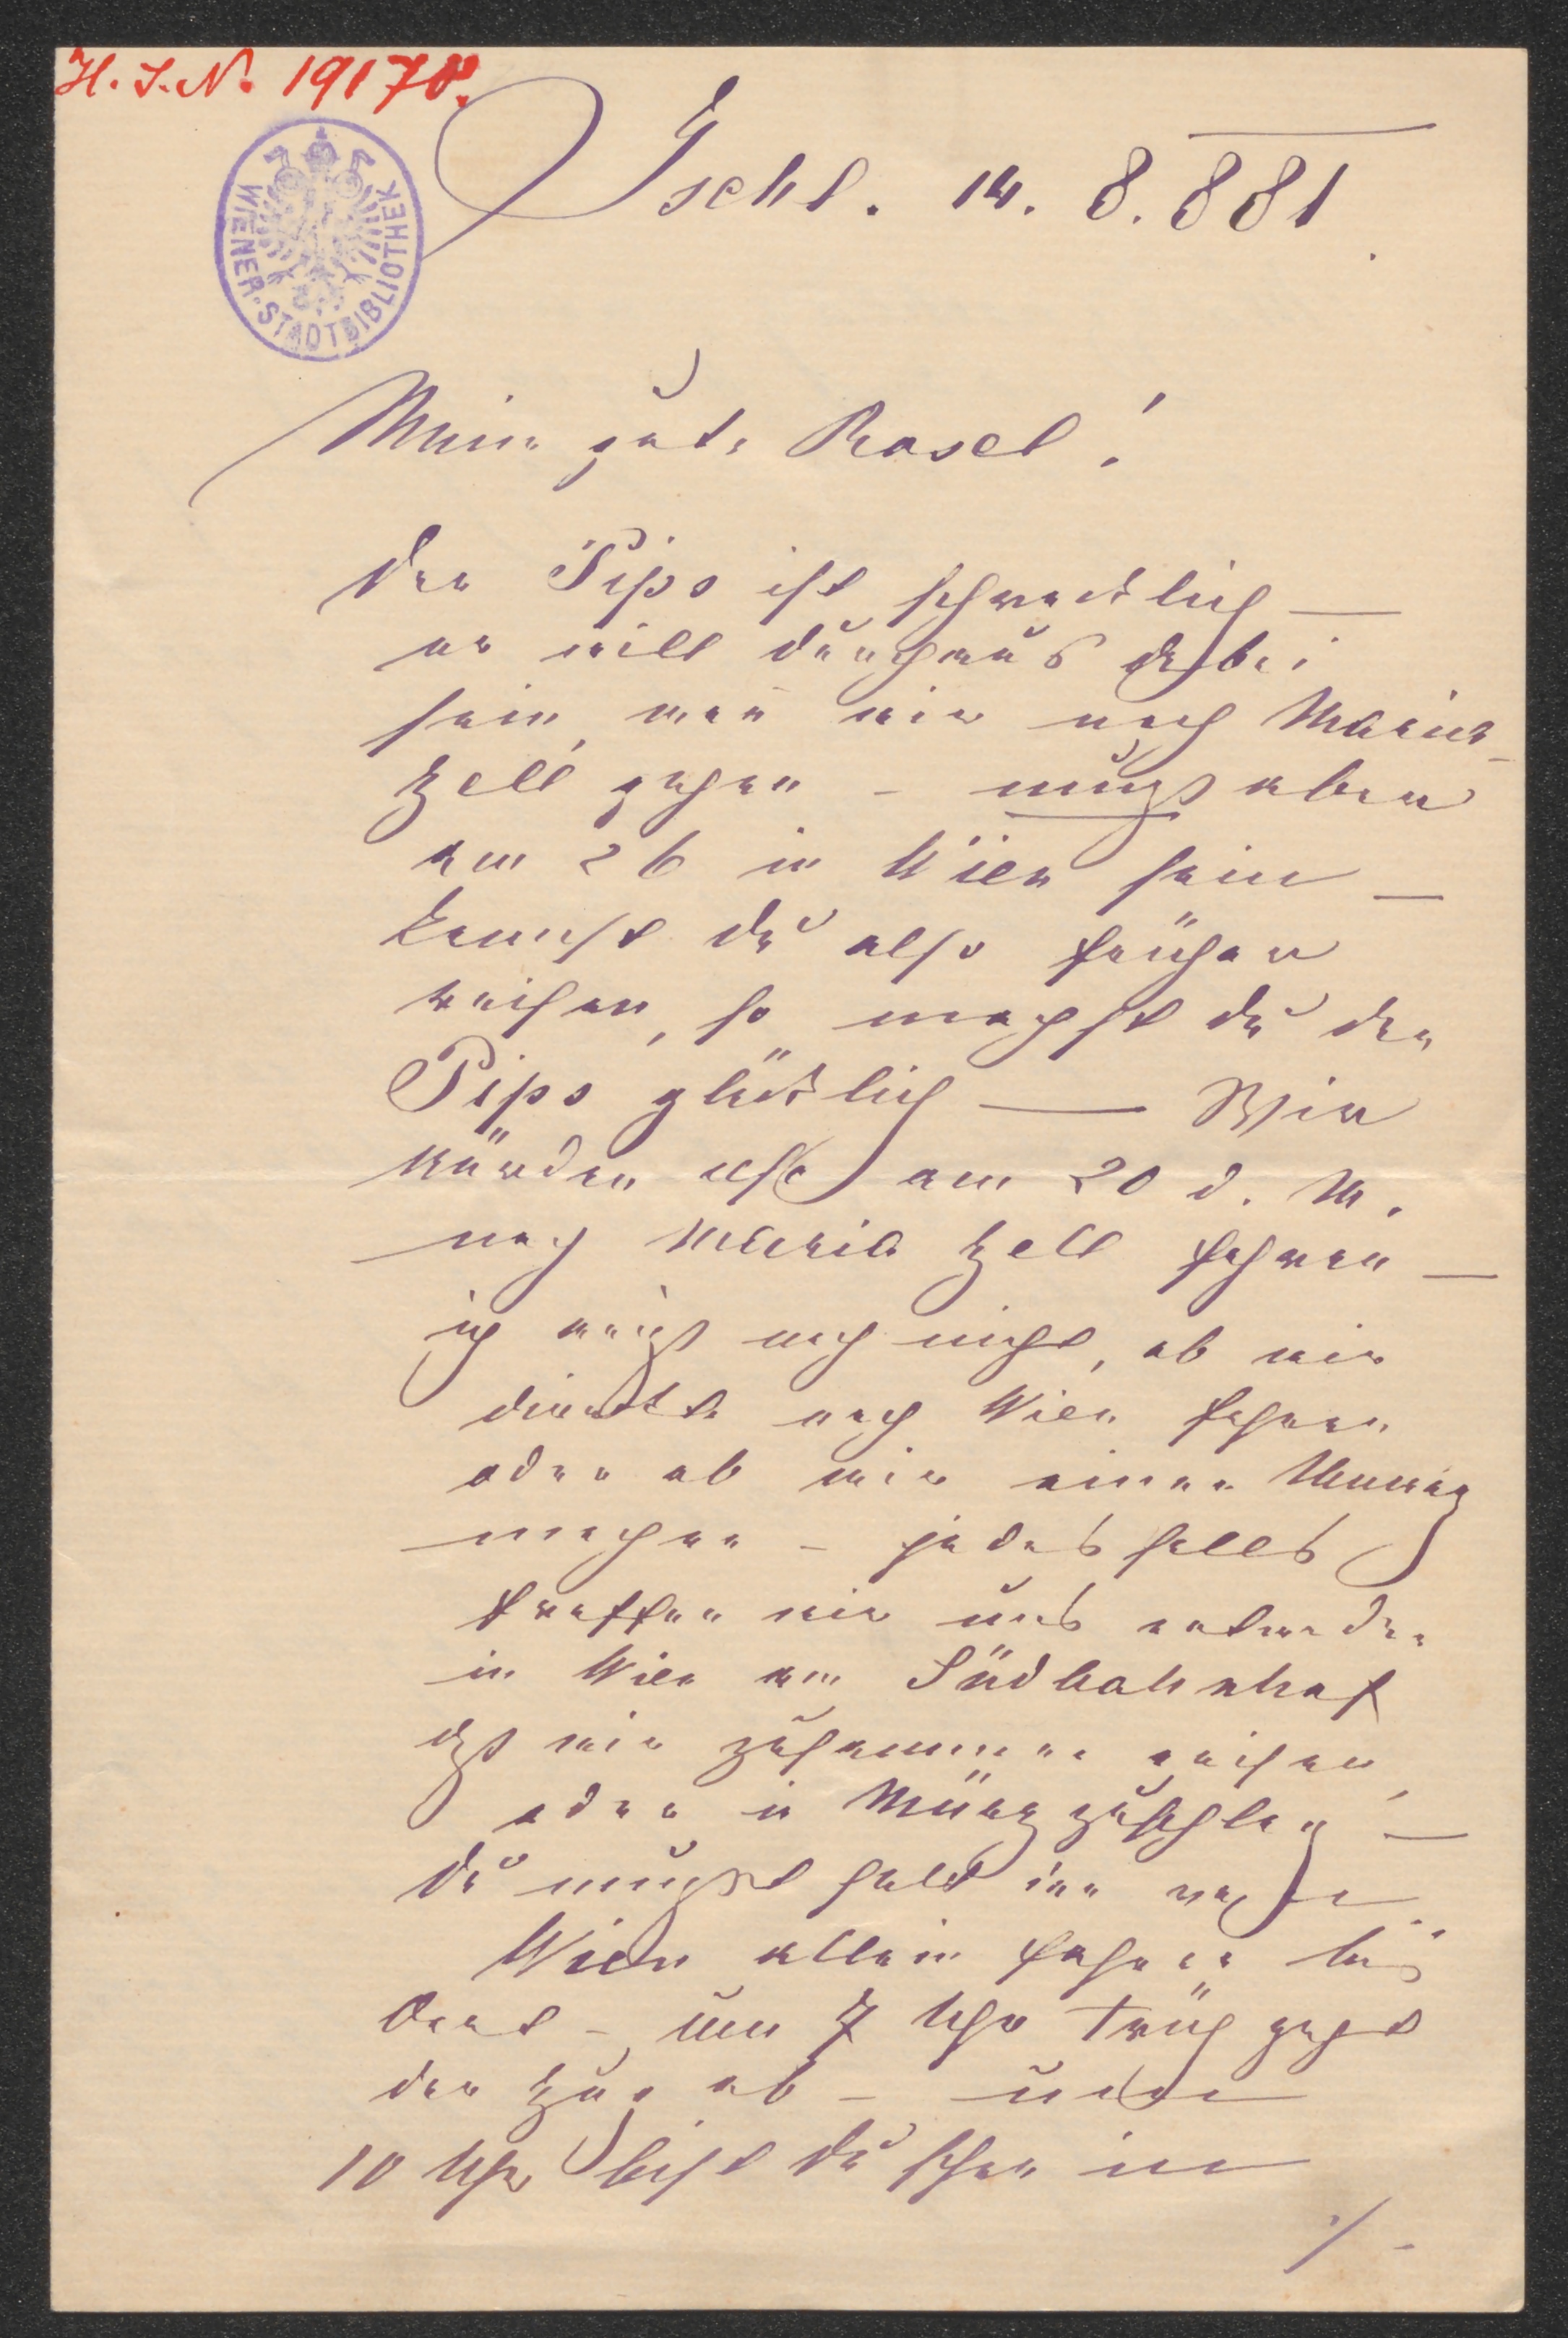 H. I. N. 19178.
WIENER·STADTBIBLIOTHEK
Ischl. 14. 8. 881.
Meine gute Rosel!
Der Pips ist schrecklich —
er will durchaus dabei
sein, wen wir nach Maria-
zell gehen – muß aber
am 26 in Wien sein —
kannst du also früher
reisen, so machst du den
Pips glücklich — Wir
würden also am 20 d. M.
nach Maria Zell fahren —
ich weiß noch nicht, ob wir
direkte nach Wien fahren
oder ob wir einen
machen – jedesfalls
treffen wir uns entweder
in Wien am Südbahnhof
daß wir zusammen reisen,
oder in Mürzzuschlag —
du mußt halt von
Wien allein fahren bis
dort – um 7 Uhr Früh geht
der Zug ab – und um
10 Uhr bist du schon in
./.